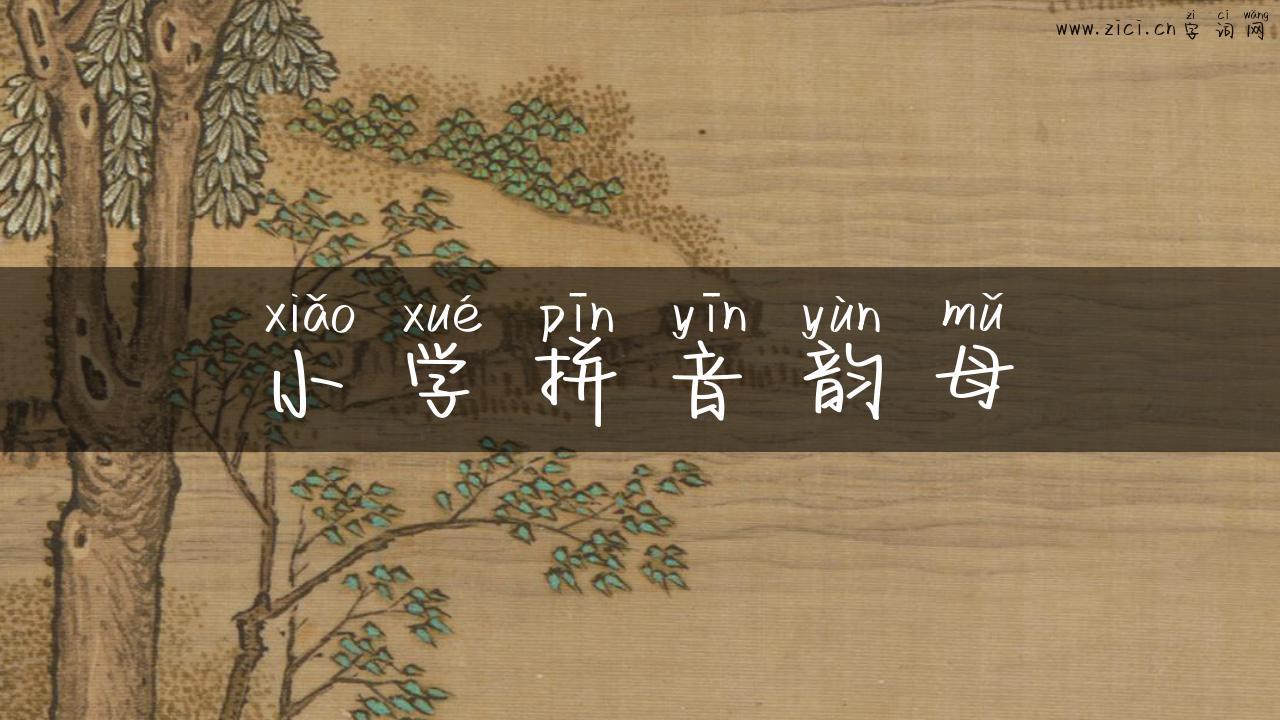 zì cí wǎng
www.zici.cn 字词网
xiǎo xué pīn yīn yùn mǔ
小学拼音韵母